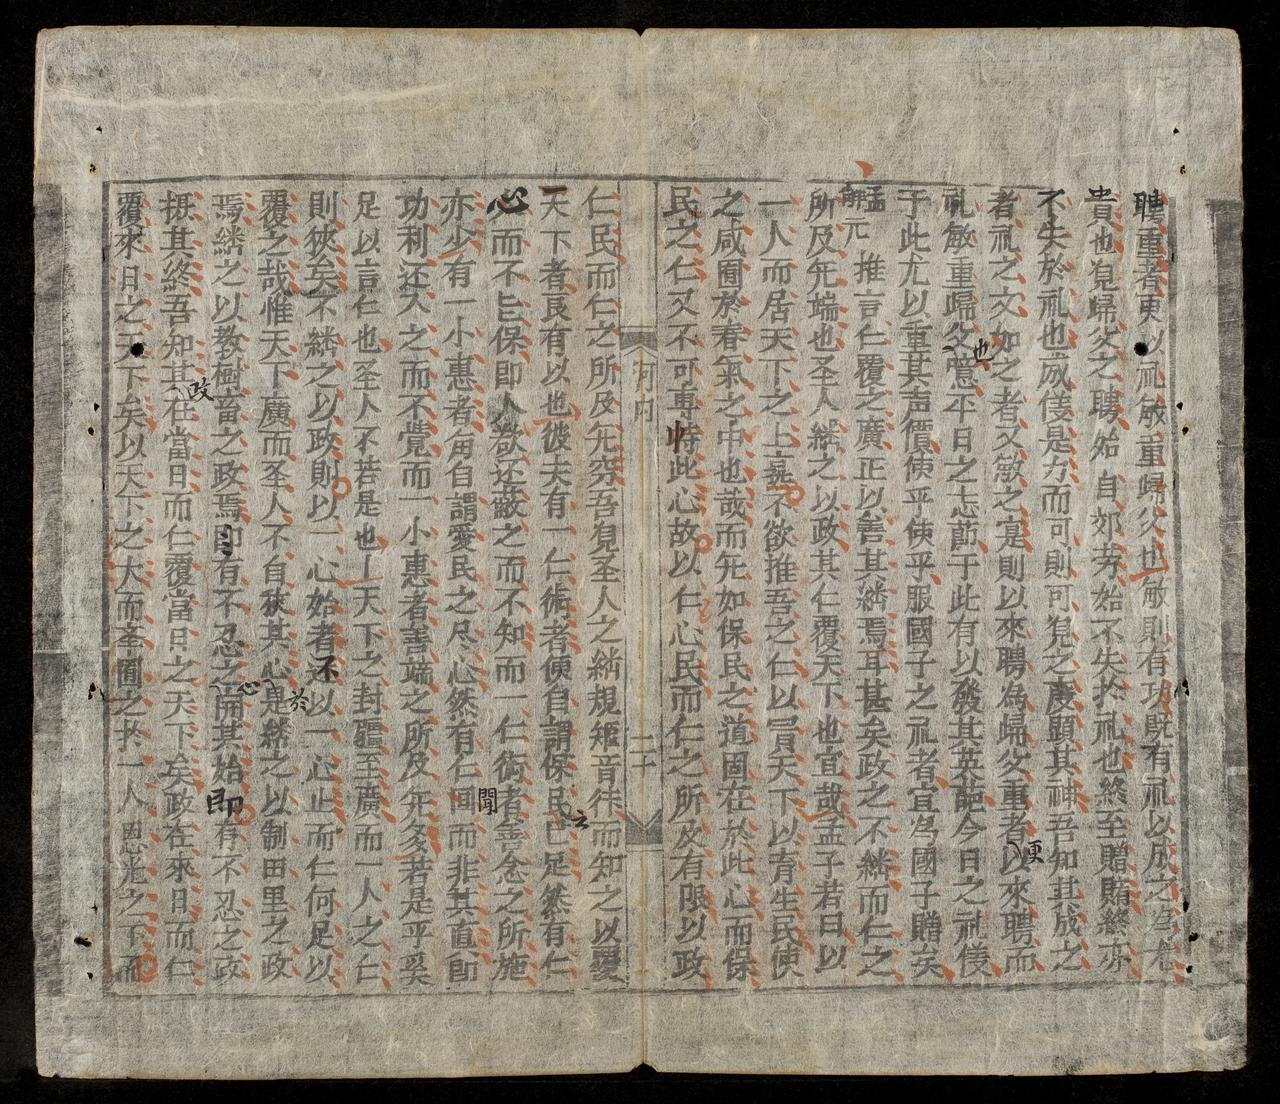 聘重者更以礼敏重歸父也敏則有功既有礼以成之
貴也覌歸父之聘始自郊芳始不失於礼也終至贈賄終亦
不失於礼也成俊是方而可則可覌之度顯其神吾知其成之
者礼之文如之者又敏之寔則以來聘為歸父重者以來聘而
礼敏重歸父意平日之志莭于此有以發其英葩今日之礼俊
于此尤以重其声價使乎使乎服國子之礼者宜為國子贈矣
孟解元 推言仁覆之廣正以善其継焉耳甚矣政之不継而仁之
所及无端也圣人継之以政其仁覆天下也宜哉孟子若曰以
一人而居天下之上嘉不欲推吾之仁以冒天下以育生民使
之咸囿於春氣之中也哉而无如保民之道固在於此心而保
民之仁又不可專恃此心故以仁心民而仁之所及有限以政
仁民而仁之所及无窮吾覌圣人之継規矩音律而知之以覆
天下者良有以也彼夫有一仁術者便自謂保民已足然有仁
心而不足保即人欲还蔽之而不知而一仁術者善念之所施
亦少有一小惠者角自謂愛民之尽心然有仁聞而非其直即
功利还入之而不覺而一小惠者善端之所及年多若是乎奚
足以言仁也圣人不若是也一天下之封疆至廣而一人之仁
則狹矣不継之以政則以一心始者不以一心止而仁何足以
覆之哉惟天下廣而圣人不自狹其心思継之以制田里之政
焉継之以教樹畜之政焉即有不忍之心開其始即有不忍之政
抵其終吾知其在當日而仁覆當日之天下矣政在來日而仁
覆來日之天下矣以天下之大而圣囿之於一人恩光之下而